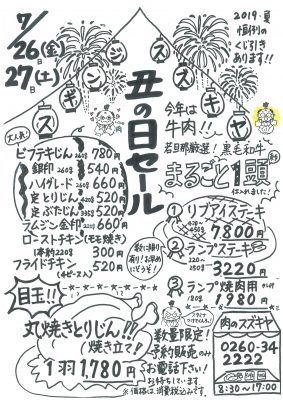 7/26(金)
27(土)
2019・夏
恒例の
くじ引き
あります!!
ジンギス スズキヤ
丑の日セール
今年は
牛肉!!
若旦那厳選! 黒毛和牛
まるごと1頭
仕入れました!
大人気!
ビフテキじん 260g 780円
銀印 260g 540円
ハイグレード 260g 660円
定 とりじん 420g 520円
定 ぶたじん 520円
ラムジン 金印 660円
ローストチキン(モモ焼き)
1本約220g 300円
フライドチキン
520円
① リブアイステーキ
7800円
② ランプステーキ
220〜250g
3220円
③ ランプ焼肉用
180g 1980円
目玉!!
丸焼きとりじん!!
(焼き立て!)
1羽1,780円
数量限定!
予約販売のみ
お電話下さい!
お待ちしています。
※価格は、消費税込みです。
肉のスズキヤ
0260-34
2222
8:30〜17:00